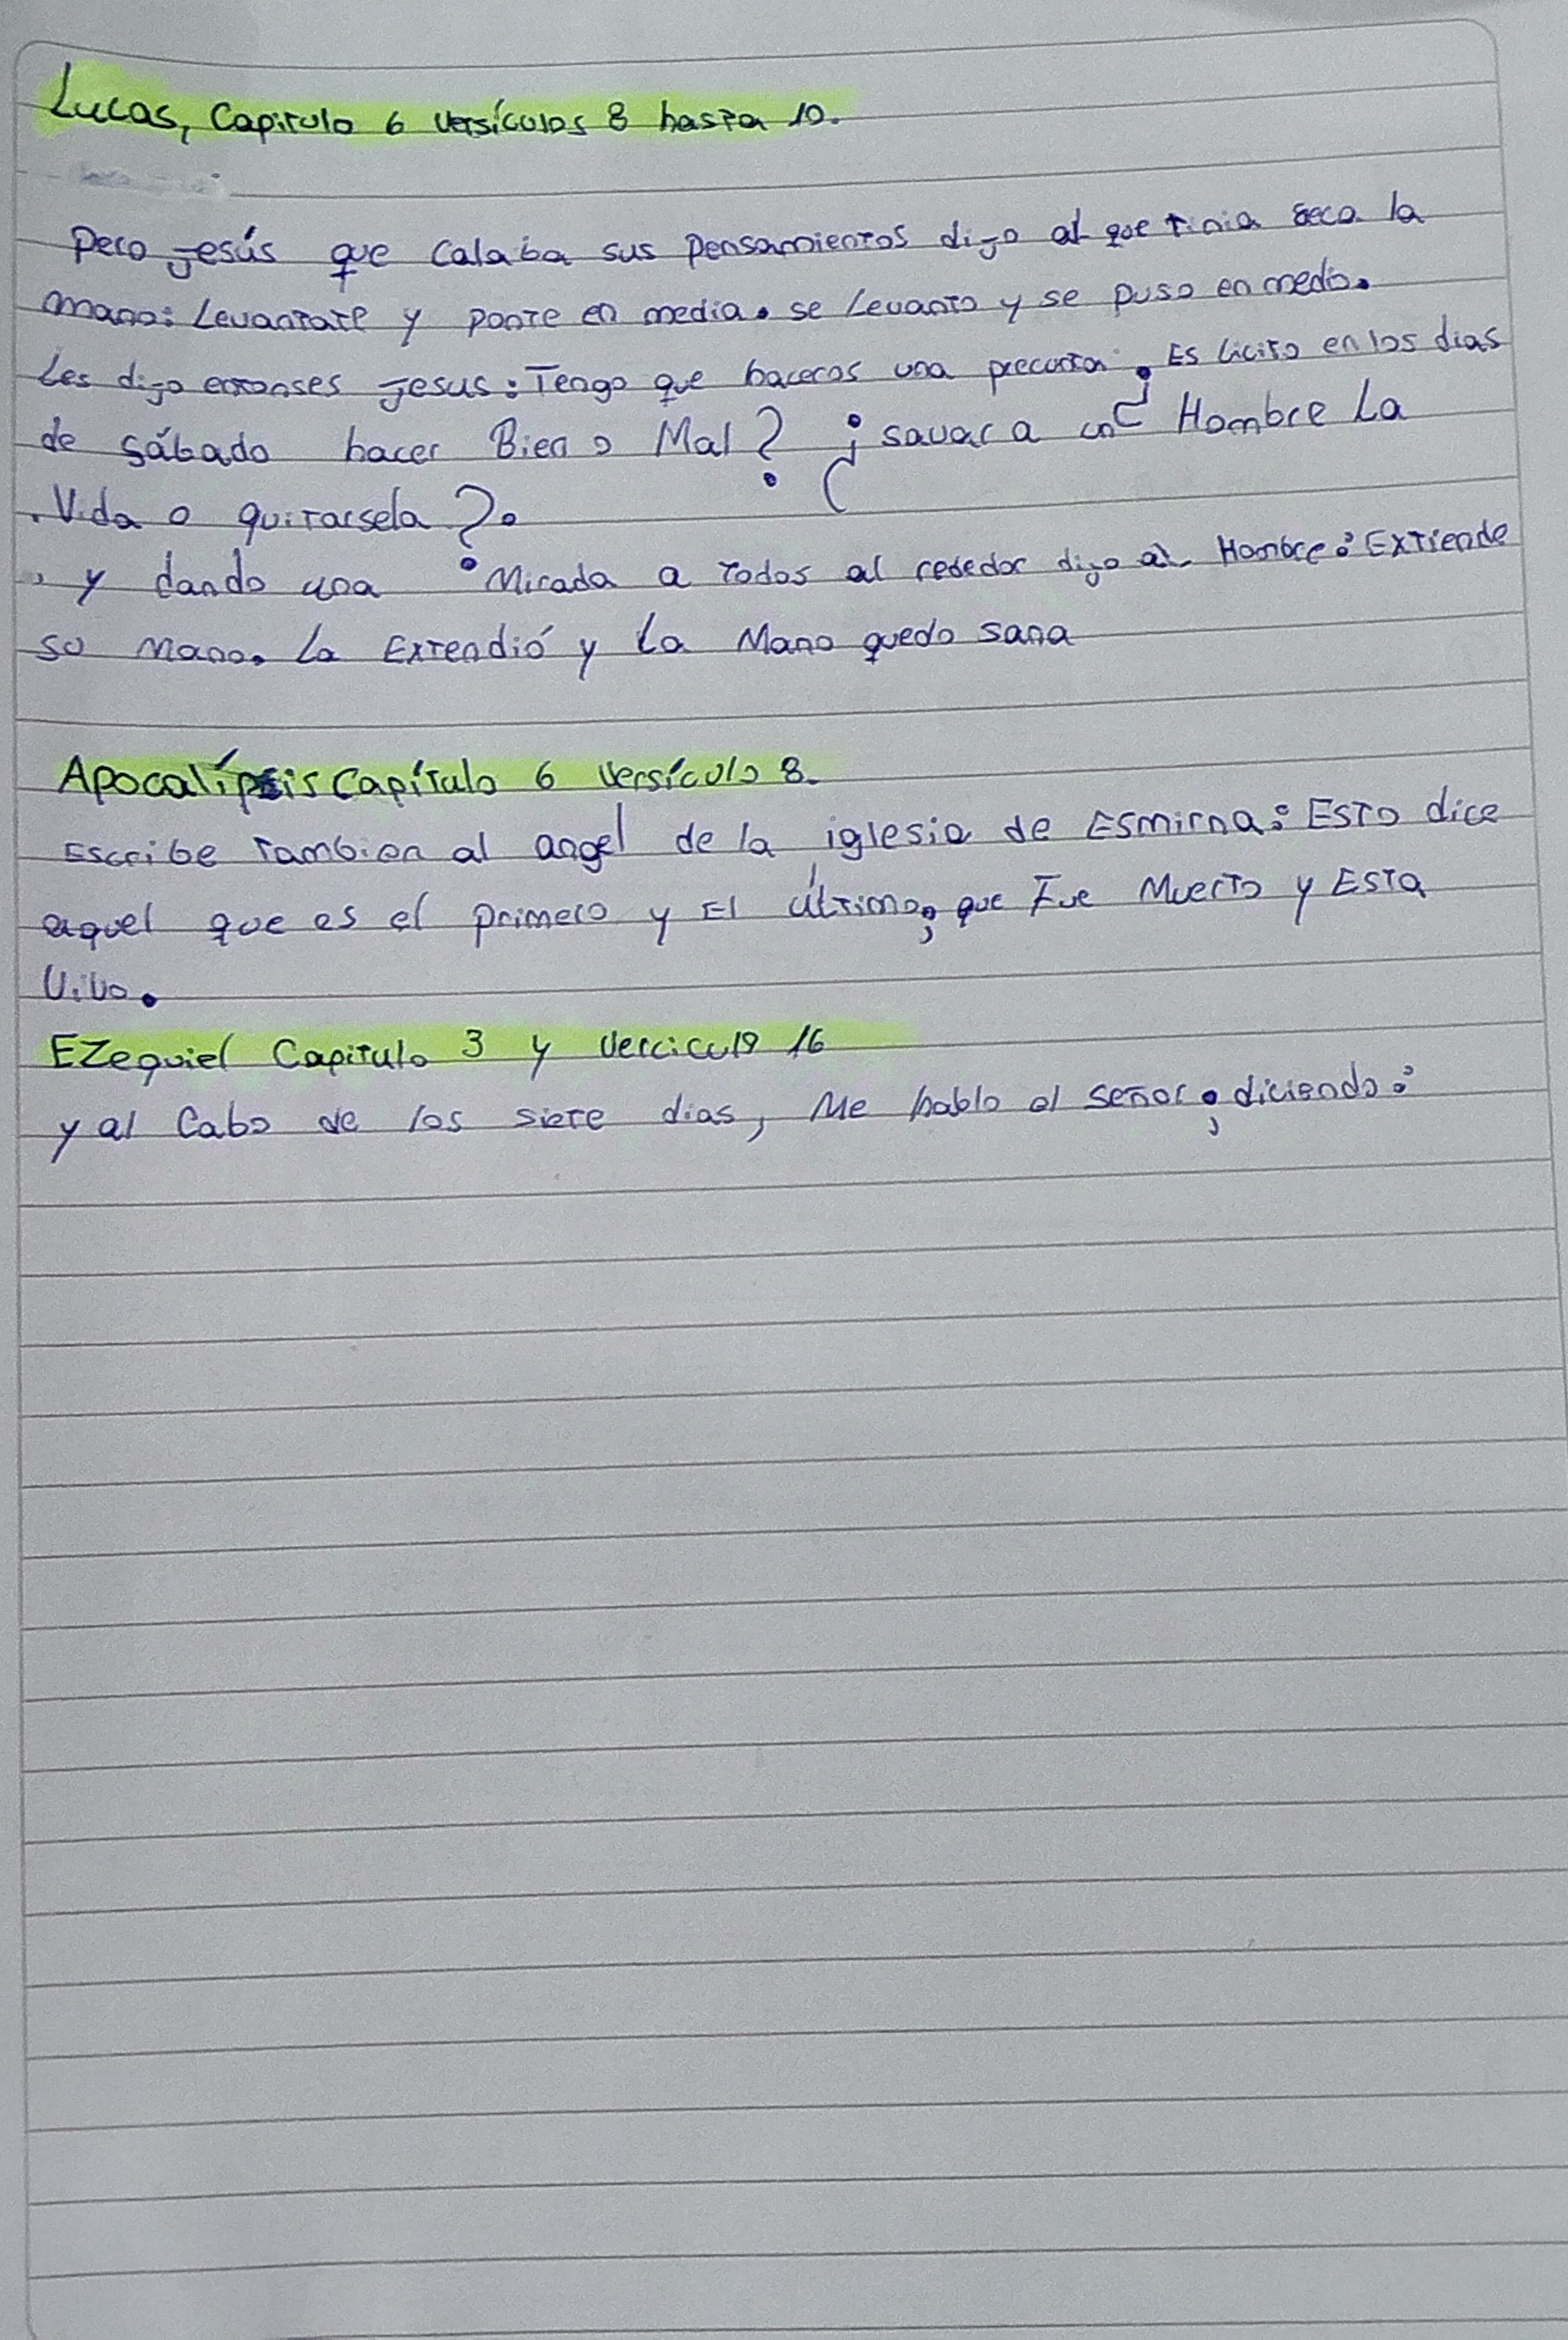 Lucas, Capitulo 6 versículos 8 hasta 10.
Pero Jesús que Calaba sus Pensamientos dijo al que tinia seca la
mano: Levantate y ponte en media. se Levanto y se puso en medio.
Les dijo Jesus: Tengo que haceros una ¿Es licito en los dias
de sábado hacer Bien o Mal? ¿savar a un Hombre La
Vida o quitarsela?.
y dando una Mirada a todos al rededor dijo al Hombre: Extiende
su Mano. La Extendió y La Mano quedo sana
Apocalípsis Capítulo 6 versículo 8.
Escribe Tambien al angel de la iglesia de Esmirna: Esto dice
aquel que es el primero y El último; que Fue Muerto y Esta
Vivo.
EZequiel Capitulo 3 y Verciculo 16
y al Cabo de los siete dias, Me hablo el señor; diciendo: